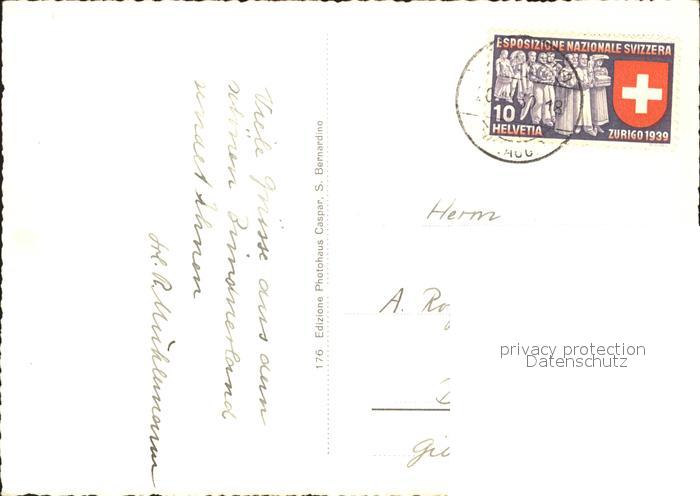 ESPOSIZIONE NAZIONALE SVIZZERA
10
HELVETIA
ZURIGO 1939
Herrn
A.
privacy protection
Datenschutz
176 Edizione Photohaus Caspar, S. Bernardino
Viele Grüsse aus dem
schönen Bündnerland
sendet Ihnen